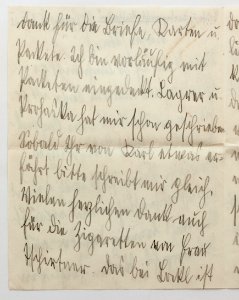 dank für die Briefe, Karten u.
Pakete. Ich bin vorläufig mit
Paketen eingedekt. Lagrer u.
Prohaska hat mir schon geschrieben
Sobald Ihr von Karl etwas er-
fährt bitte schreibt mir gleich.
Vielen herzlichen Dank auch
für die Zigaretten von Frau
Tschirtner. das bei ist